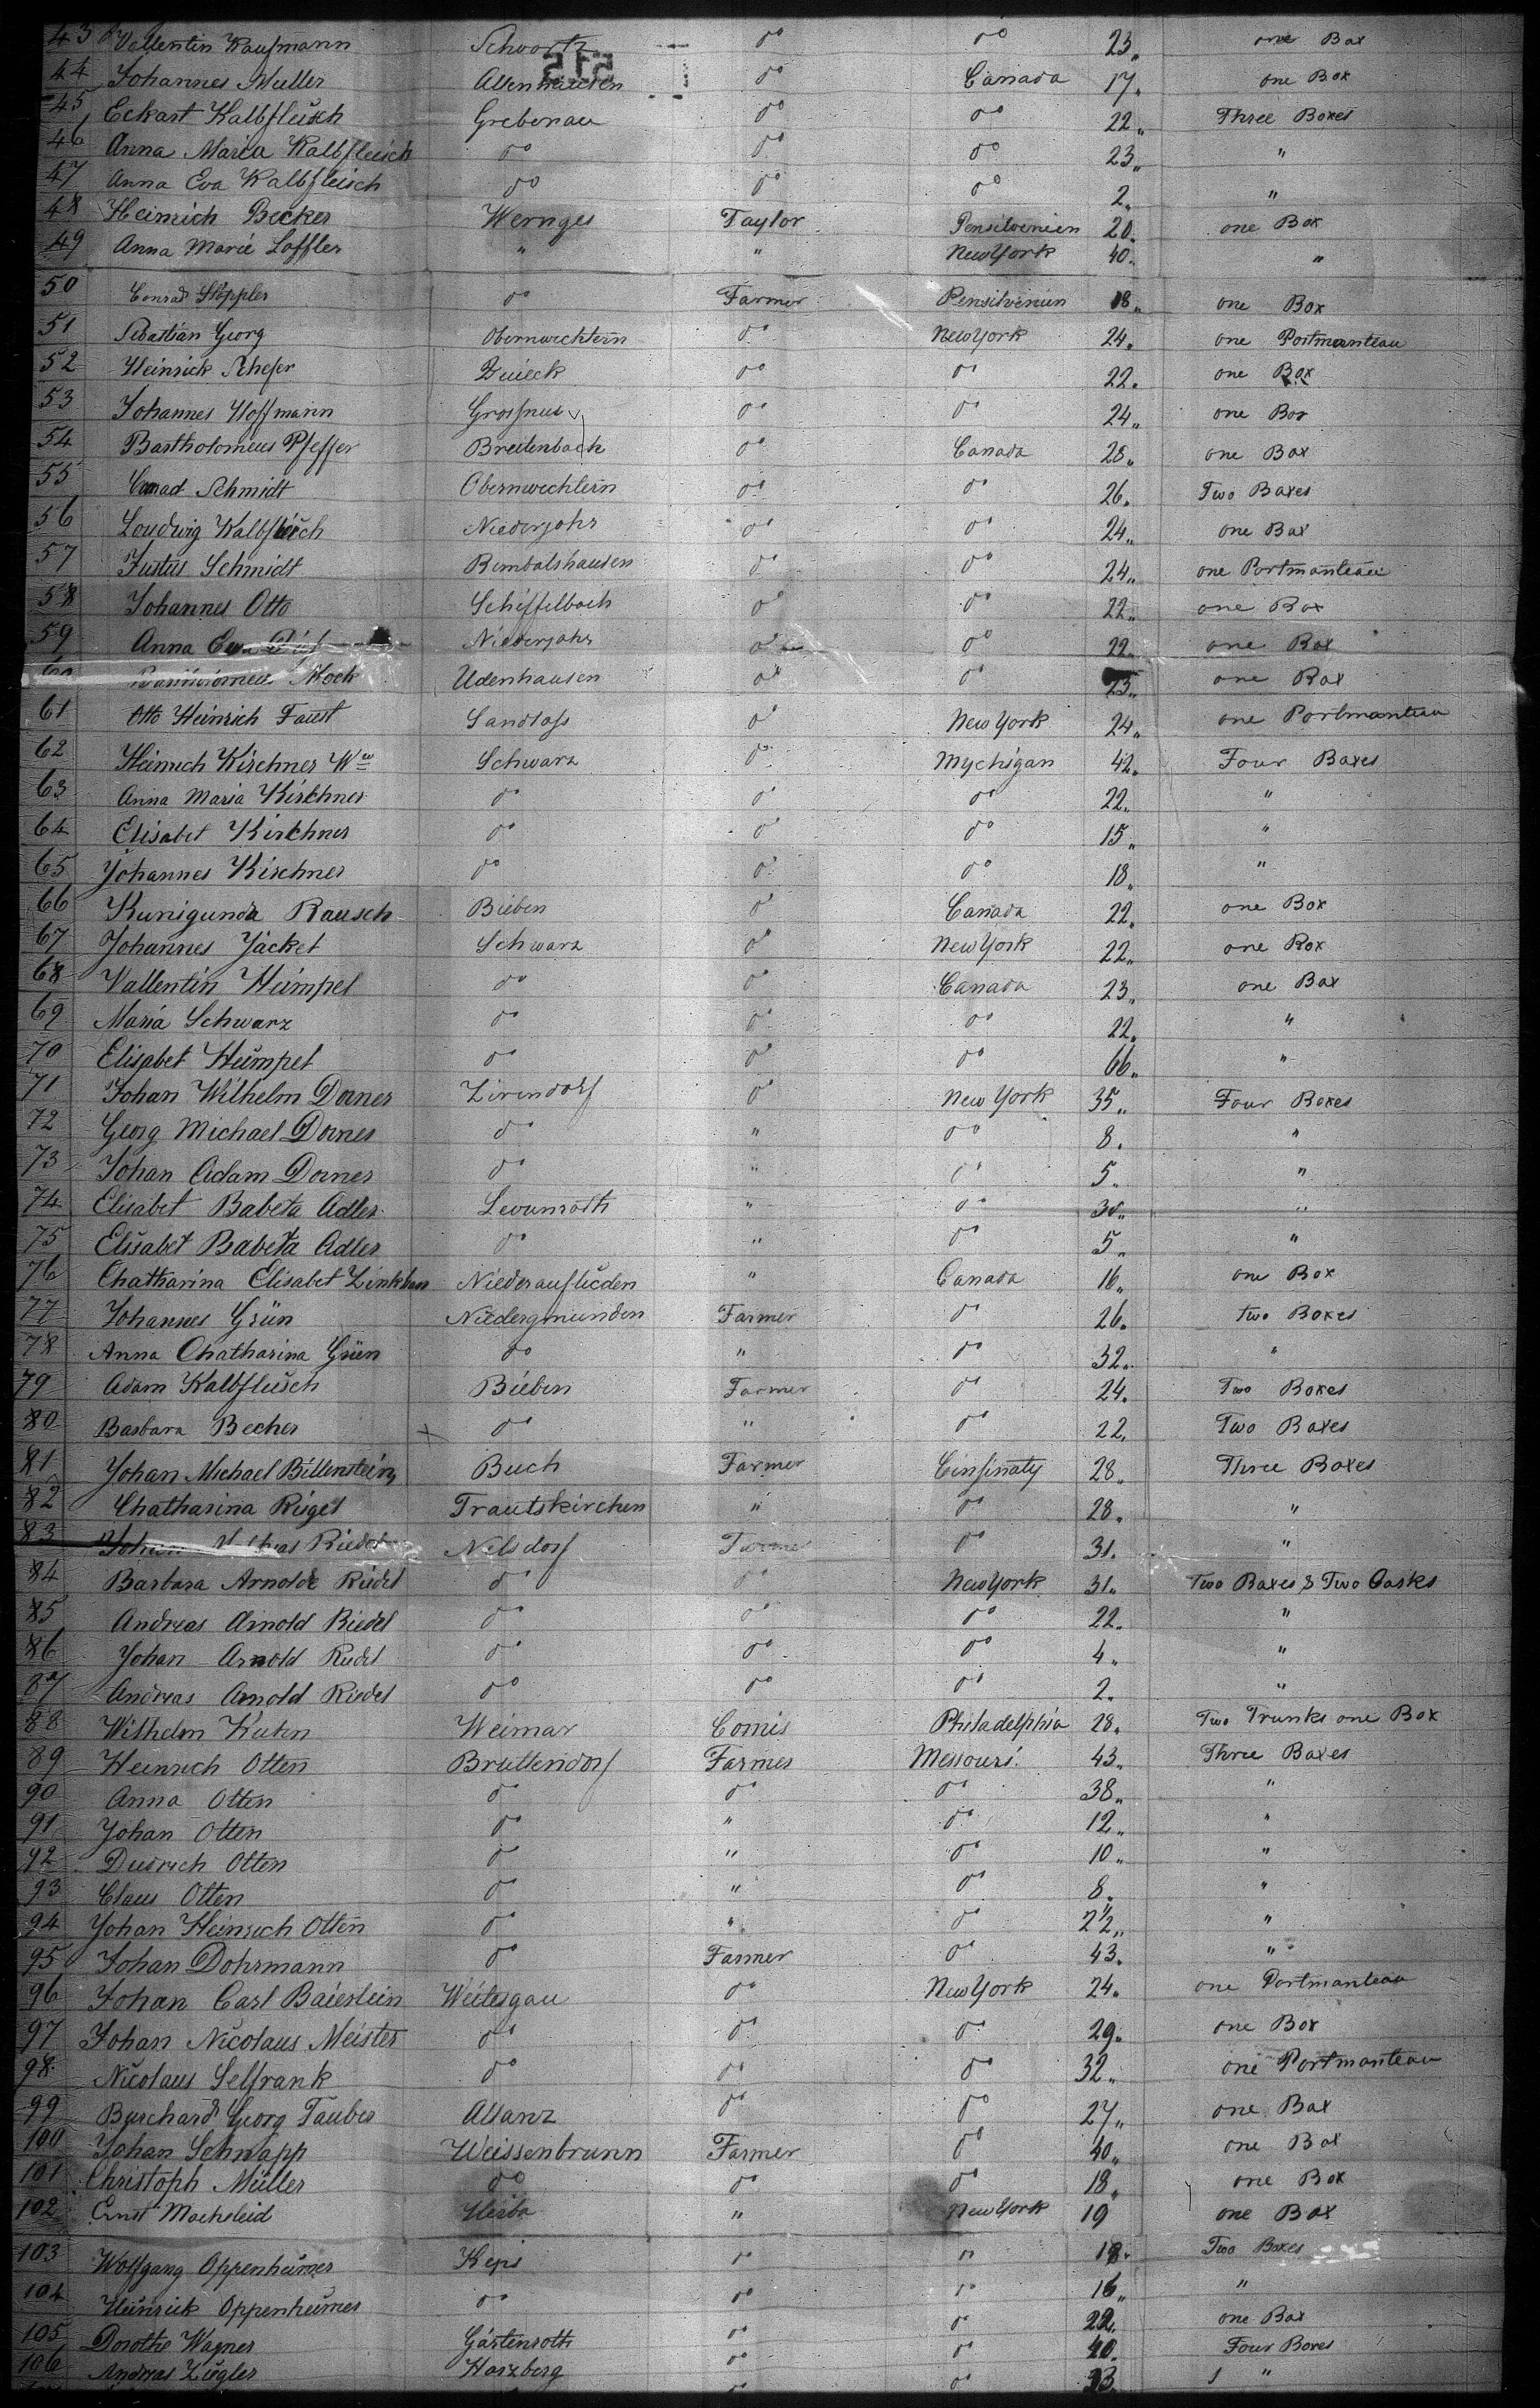 43 Vallentin Kaufmann Schwartz do do 23 one Box
515
44 Johannes Muller Allenhausen do Canada 17 one Box
45 Eckart Kalbfleisch Grebenau do do 22 Three Boxes
46 Anna Maria Kalbfleisch do do do 23 "
47 Anna Eva Kalbfleisch do do do 2 "
48 Heinrich Becker Wernges Taylor Pensilvenien 20 one Box
49 Anna Marie Loffler " " New York 40 "
50 Conrad do Farmer Pensilvenien 18 one Box
51 Sebastian Georg Obernwechtern do New York 24 one Portmanteau
52 Heinrich Schefer do do 22 one Box
53 Johannes Hoffmann do do 24 one Box
54 Bartholomeus Pfeffer Breitenbach do Canada 28 one Box
55 Conrad Schmidt Obernwechtern do do 26 Two Boxes
56 Loudwig Kalbfleisch Niederjohr do do 24 one Box
57 Justus Schmidt Rembalshausen do do 24 one Portmanteau
58 Johannes Otto Schiffelbach do do 22 one Box
59 Anna Niederjohr do do 22 one Box
60 Udenhausen do do 23 one Box
61 Otto Heinrich Faust Sandlofs do New York 24 one Portmanteau
62 Heinrich Kirchner Schwarz do Mychigan 42 Four Boxes
63 Anna Maria Kirchner do do do 22 "
64 Elisabet Kirchner do do do 15 "
65 Johannes Kirchner do do do 18 "
66 Kunigunda Rausch Bieben do Canada 22 one Box
67 Johannes Jäckel Schwarz do New York 22 one Box
68 Vallentin Heimpel do do Canada 23 one Box
69 Maria Schwarz do do do 22 "
70 Elisabet Heimpel do do do 66 "
71 Johan Wilhelm Dorner Zirendorf do New York 35 Four Boxes
72 Georg Michael Dorner do " do 8 "
73 Johan Adam Dorner do " do 5 "
74 Elisabet Babeta Adler " do 30 "
75 Elisabet Babeta Adler do " do 5 "
76 Chatharina Elisabet Niederauflieden " Canada 16 one Box
77 Johannes Grün Niedergmunden Farmer do 26 Two Boxes
78 Anna Chatharina Grün do " do 32 "
79 Adam Kalbfleisch Bieben Farmer do 24 Two Boxes
80 Barbara Becher do " do 22 Two Boxes
81 Johan Michael Billenstein Buch Farmer Cinsinaty 28 Three Boxes
82 Chatharina Rigel Trautskirchen " do 28 "
83 Johan Riedel Nelsdorf Farmer do 31 "
84 Barbara Arnolde Riedel do do New York 31 Two Boxes & Two Casks
85 Andreas Arnold Riedel do do do 22 "
86 Johan Arnold Riedel do do do 4 "
87 Andreas Arnold Riedel do do do 2 "
88 Wilhelm Kuten Weimar Comis Philadelphia 28 Two Trunks one Box
89 Heinrich Otten Bruttendorf Farmer Messouri 43 Three Boxes
90 Anna Otten do do do 38 "
91 Johan Otten do " do 12 "
92 Diedrich Otten do " do 10 "
93 Claus Otten do " do 8 "
94 Johan Heinrich Otten do " do 2½ "
95 Johan Dohrmann do Farmer do 43 "
96 Johan Carl Baierlein Weitesgau do New York 24 one Portmanteau
97 Johan Nicolaus Meister do do do 29 one Box
98 Nicolaus Selfrank do do do 32 one Portmanteau
99 Burchard Georg Tauber Allanz do do 27 one Box
100 Johan Schnapp Weissenbrunn Farmer do 40 one Box
101 Christoph Müller do do do 18 one Box
102 Ernst Machsleid " New York 19 one Box
103 Wolfgang Oppenheimer Keps do do 18 Two Boxes
104 Heinrick Oppenheimer do do do 16 "
105 Dorothe Wagner Gärtenroth do do 22 one Box
106 Andreas Ziegler Harzberg do do 40 Four Boxes
do do 33 "